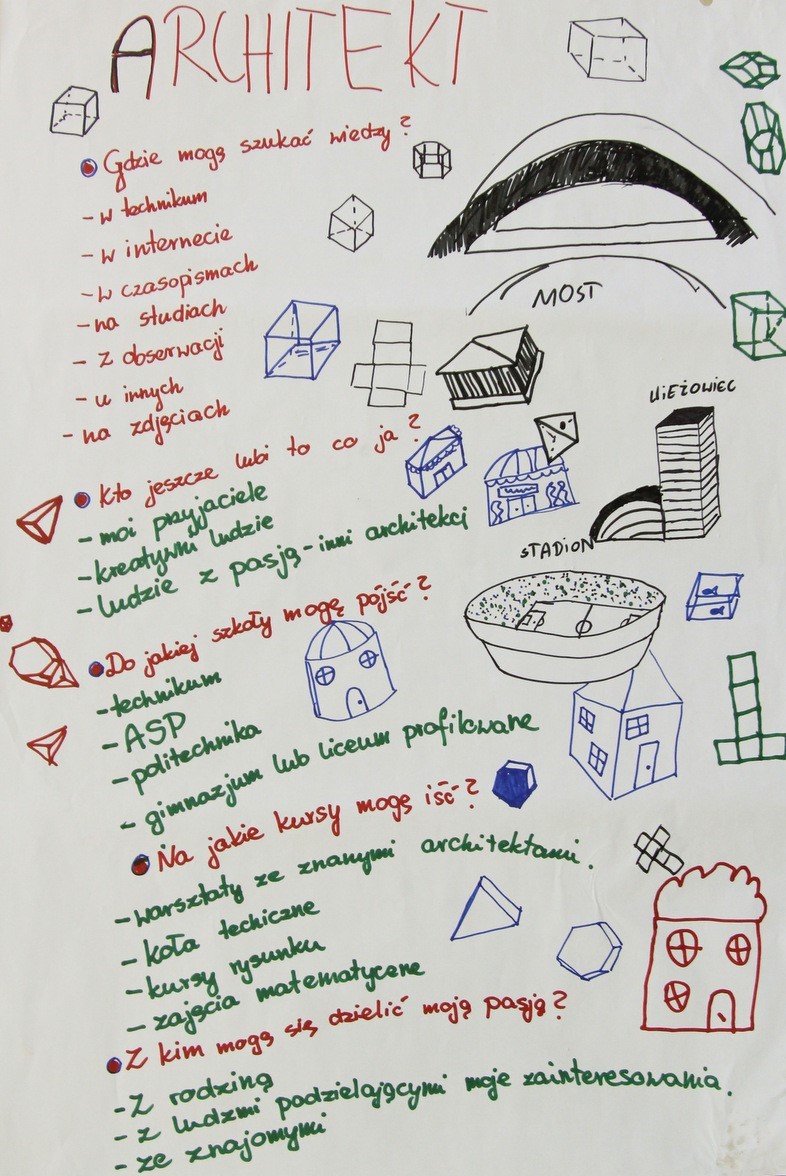 ARCHITEKT
Gdzie mogę szukać wiedzy?
- w technikum
- w internecie
- w czasopismach
- na studiach
- z obserwacji
- u innych
- na zdjęciach
MOST
WIEŻOWIEC
Kto jeszcze lubi to co ja?
- moi przyjaciele
- kreatywni ludzie
- ludzie z pasją - inni architekci
STADION
Do jakiej szkoły mogę pójść?
- technikum
- ASP
- politechnika
- gimnazjum lub liceum profilowane
Na jakie kursy mogę iść?
- warsztaty ze znanymi architektami.
- koła techiczne
- kursy rysunku
- zajęcia matematyczne
Z kim mogę się dzielić moją pasją?
- Z rodziną
- z ludzmi podzielającymi moje zainteresowania.
- ze znajomymi